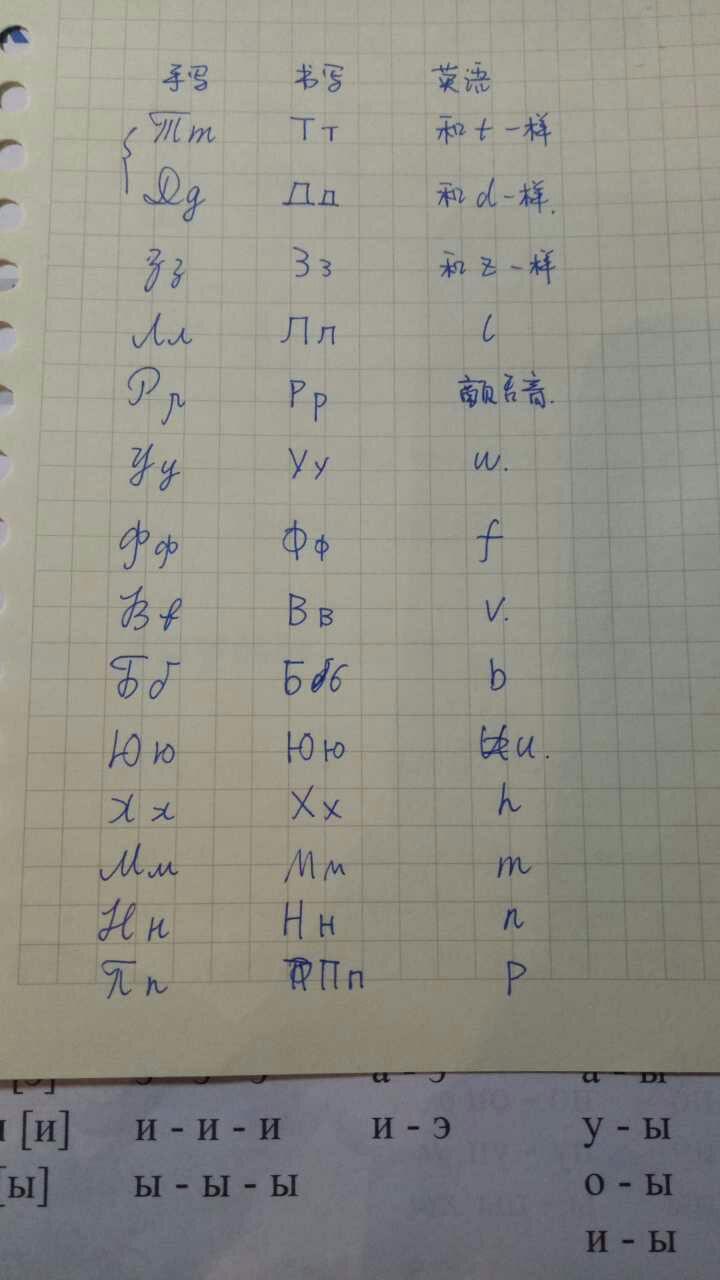 手写 书写 英语
Тт Тт 和t一样
Дд Дд 和d一样.
Зз Зз 和z一样
Лл Лл l
Рр Рр 颤舌音.
Уу Уу w.
Фф Фф f
Вв Вв v.
Бб Бб b
Юю Юю u.
Хх Хх h
Мм Мм m
Нн Нн n
Пп Пп p
а - э а - ы
[и] и - и - и и - э у - ы
[ы] ы - ы - ы о - ы
и - ы